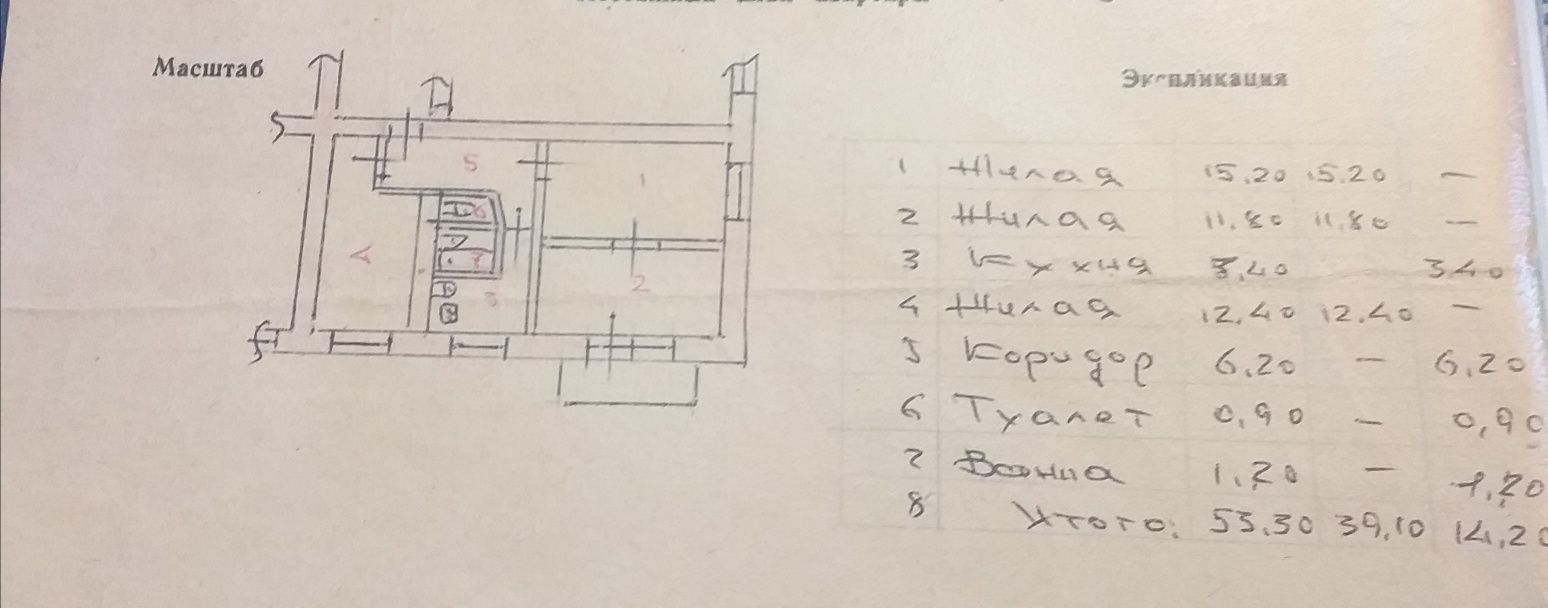 Масштаб
Экспликация
5
1
6
4
7
2
3
1 Жилая 15,20 15,20 —
2 Жилая 11,80 11,80 —
3 Кухня 5,40 3,40
4 Жилая 12,40 12,40 —
5 Коридор 6,20 — 6,20
6 Туалет 0,90 — 0,90
7 Ванна 1,20 — 1,20
8 Итого: 53,30 39,10 14,20